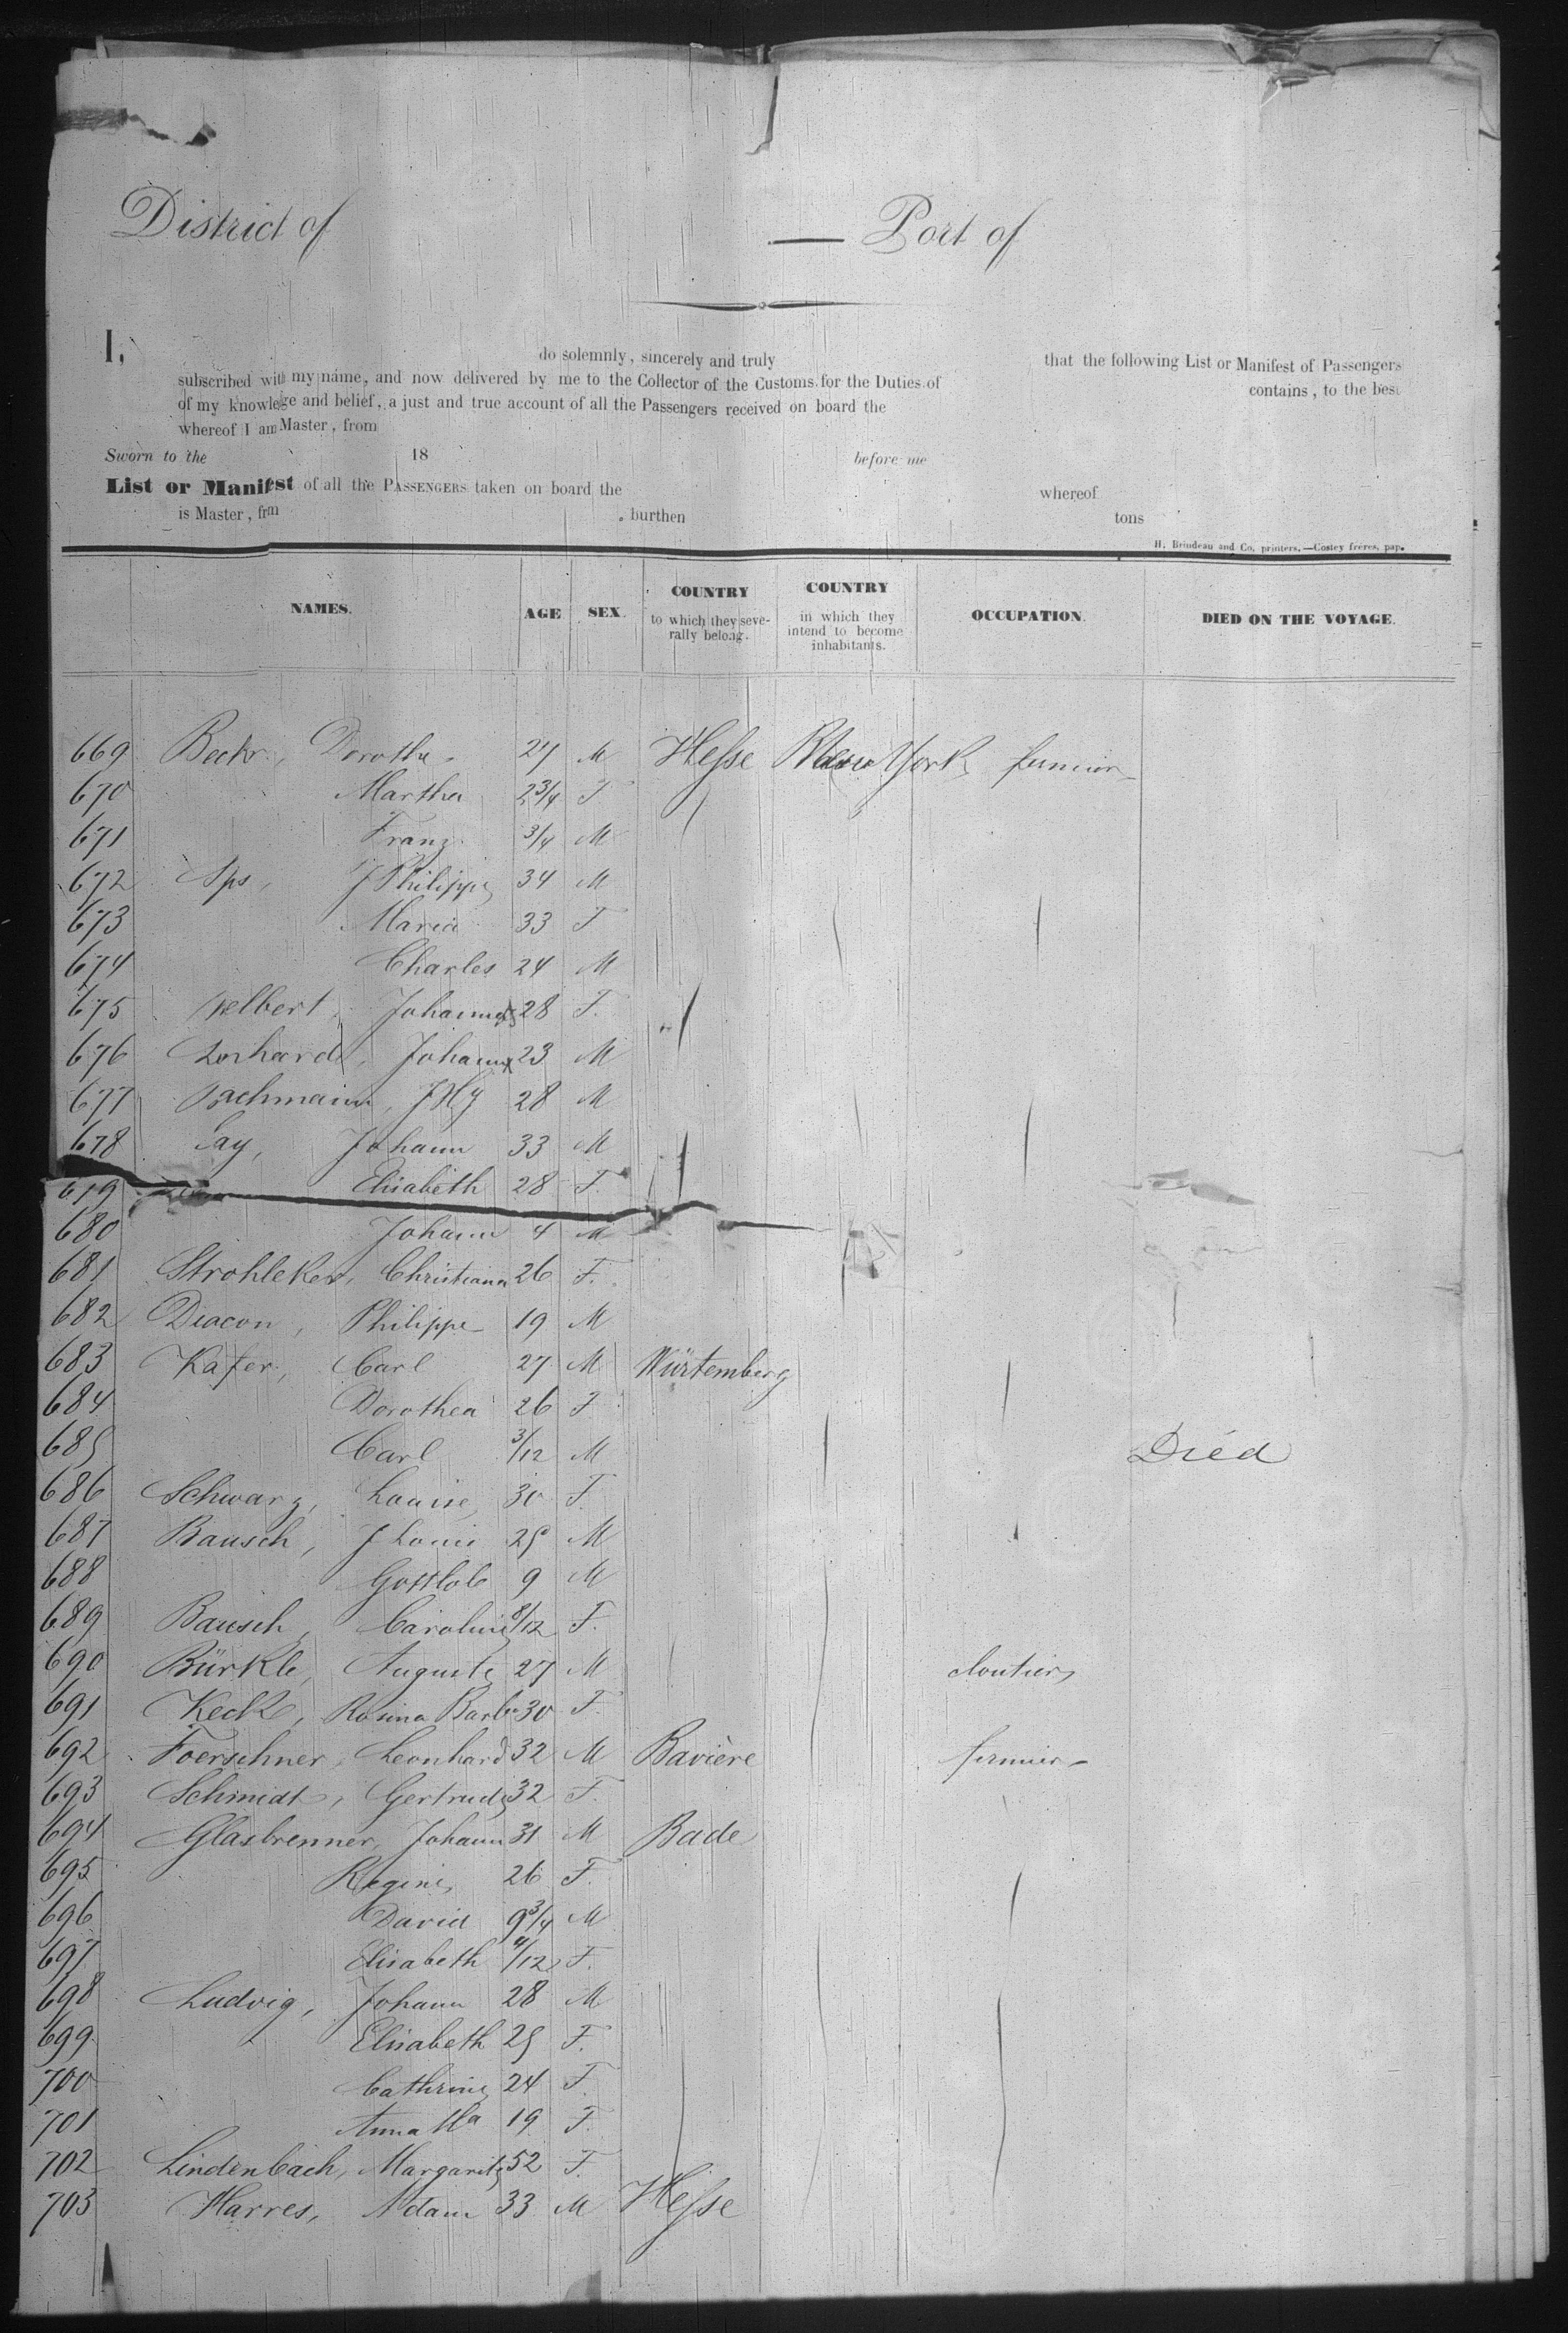 District of — Port of
I, do solemnly, sincerely and truly that the following List or Manifest of Passengers
subscribed with my name, and now delivered by me to the Collector of the Customs for the Duties of contains, to the best
of my knowledge and belief, a just and true account of all the Passengers received on board the
whereof I am Master, from
Sworn to the 18 before me
List or Manifest of all the PASSENGERS taken on board the whereof
is Master, from burthen tons
H. Brindeau and Co, printers.—Costey frères, pap.
NAMES. AGE SEX. COUNTRY to which they severally belong. COUNTRY in which they intend to become inhabitants. OCCUPATION. DIED ON THE VOYAGE.
669 Beckr, Dorothe 27 M Hesse New York fermier
670 Martha 2 3/4 F
671 Franz 3/4 M
672 J Philippe 34 M
673 Maria 33 F
674 Charles 24 M
675 Johannes 28 F.
676 Johann 23 M
677 28 M
678 Johann 33 M
679 Elisabeth 28 F.
680 Johann 4 M
681 Strohleker, Christiana 26 F.
682 Deacon, Philippe 19 M
683 Kafer, Carl 27 M Würtemberg
684 Dorothea 26 F
685 Carl 3/12 M Died
686 Schwarz, Louise 30 F
687 Bausch, J Louis 25 M
688 Gottlob 9 M
689 Bausch, Caroline 8/12 F.
690 Bürkle, Auguste 27 M cloutier
691 Keck, Rosina Barb 30 F
692 Foerschner, Leonhard 32 M Bavière fermier
693 Schmidt, Gertrude 32 F.
694 Glasbrenner, Johann 31 M Bade
695 Regine 26 F.
696 David 9 3/4 M
697 Elisabeth 4/12 F.
698 Ludvig, Johann 28 M
699 Elisabeth 25 F.
700 Cathrine 24 F
701 Anna Ma 19 F.
702 Lindenbach, Margarite 52 F.
703 Harres, Adam 33 M Hesse